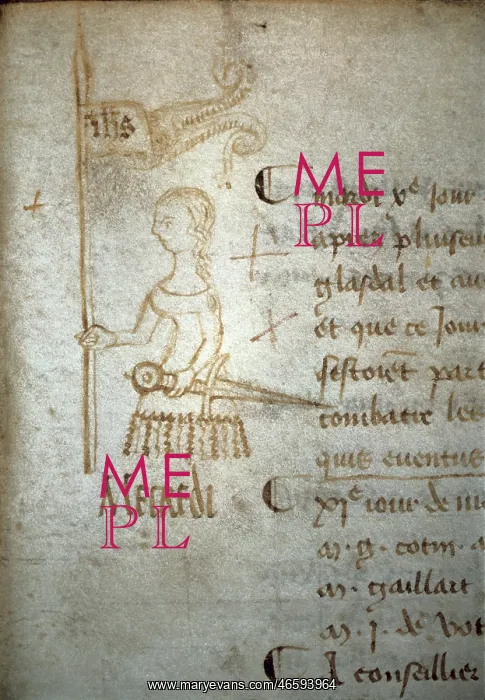 ihs
mardi xe jour
apres pluiseu
glasdal et au
et que ce Jour
sestoiet part
combatre les
quis euentus
xje iour de m
m. g. cotin. a
m. gaillart
m. J. de
conseillier
ME
PL
ME
PL
www.maryevans.com/46593964